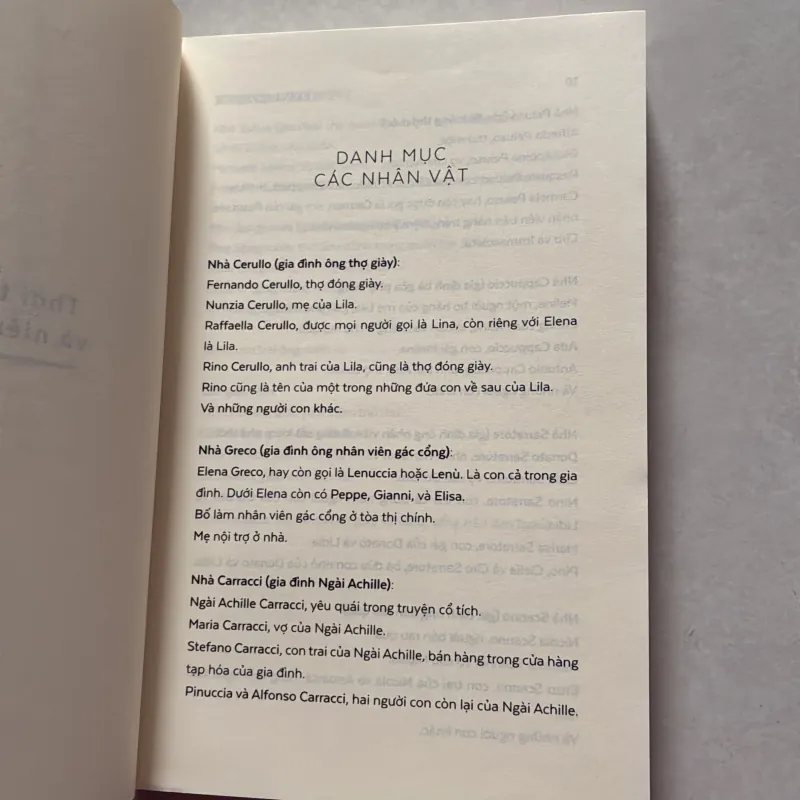 DANH MỤC
CÁC NHÂN VẬT
Nhà Cerullo (gia đình ông thợ giày):
Fernando Cerullo, thợ đóng giày.
Nunzia Cerullo, mẹ của Lila.
Raffaella Cerullo, được mọi người gọi là Lina, còn riêng với Elena
là Lila.
Rino Cerullo, anh trai của Lila, cũng là thợ đóng giày.
Rino cũng là tên của một trong những đứa con về sau của Lila.
Và những người con khác.
Nhà Greco (gia đình ông nhân viên gác cổng):
Elena Greco, hay còn gọi là Lenuccia hoặc Lenù. Là con cả trong gia
đình. Dưới Elena còn có Peppe, Gianni, và Elisa.
Bố làm nhân viên gác cổng ở tòa thị chính.
Mẹ nội trợ ở nhà.
Nhà Carracci (gia đình Ngài Achille):
Ngài Achille Carracci, yêu quái trong truyện cổ tích.
Maria Carracci, vợ của Ngài Achille.
Stefano Carracci, con trai của Ngài Achille, bán hàng trong cửa hàng
tạp hóa của gia đình.
Pinuccia và Alfonso Carracci, hai người con còn lại của Ngài Achille.